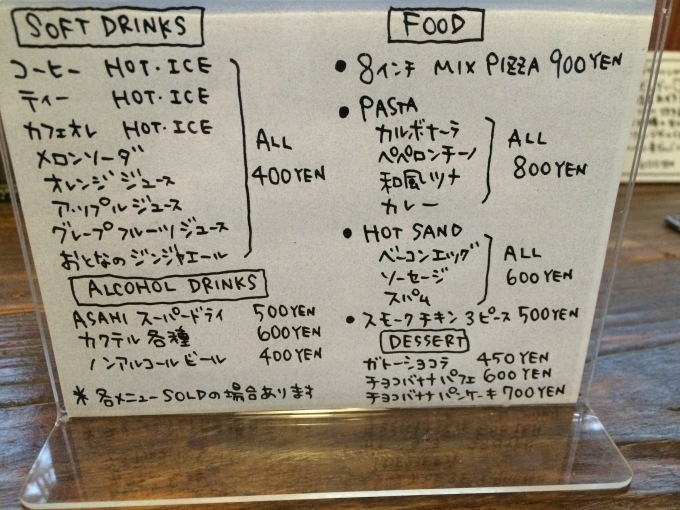 SOFT DRINKS
コーヒー HOT・ICE
ティー HOT・ICE
カフェオレ HOT・ICE
メロンソーダ
オレンジジュース
アップルジュース
グレープフルーツジュース
おとなのジンジャエール
ALL
400YEN
ALCOHOL DRINKS
ASAHI スーパードライ 500YEN
カクテル各種 600YEN
ノンアルコールビール 400YEN
*各メニューSOLDの場合あります
FOOD
• 8インチ MIX PIZZA 900YEN
• PASTA
カルボナーラ
ペペロンチーノ
和風ツナ
カレー
ALL
800YEN
• HOT SAND
ベーコンエッグ
ソーセージ
スパム
ALL
600YEN
• スモークチキン3ピース 500YEN
DESSERT
ガトーショコラ 450YEN
チョコバナナパフェ 600YEN
チョコバナナパンケーキ 700YEN